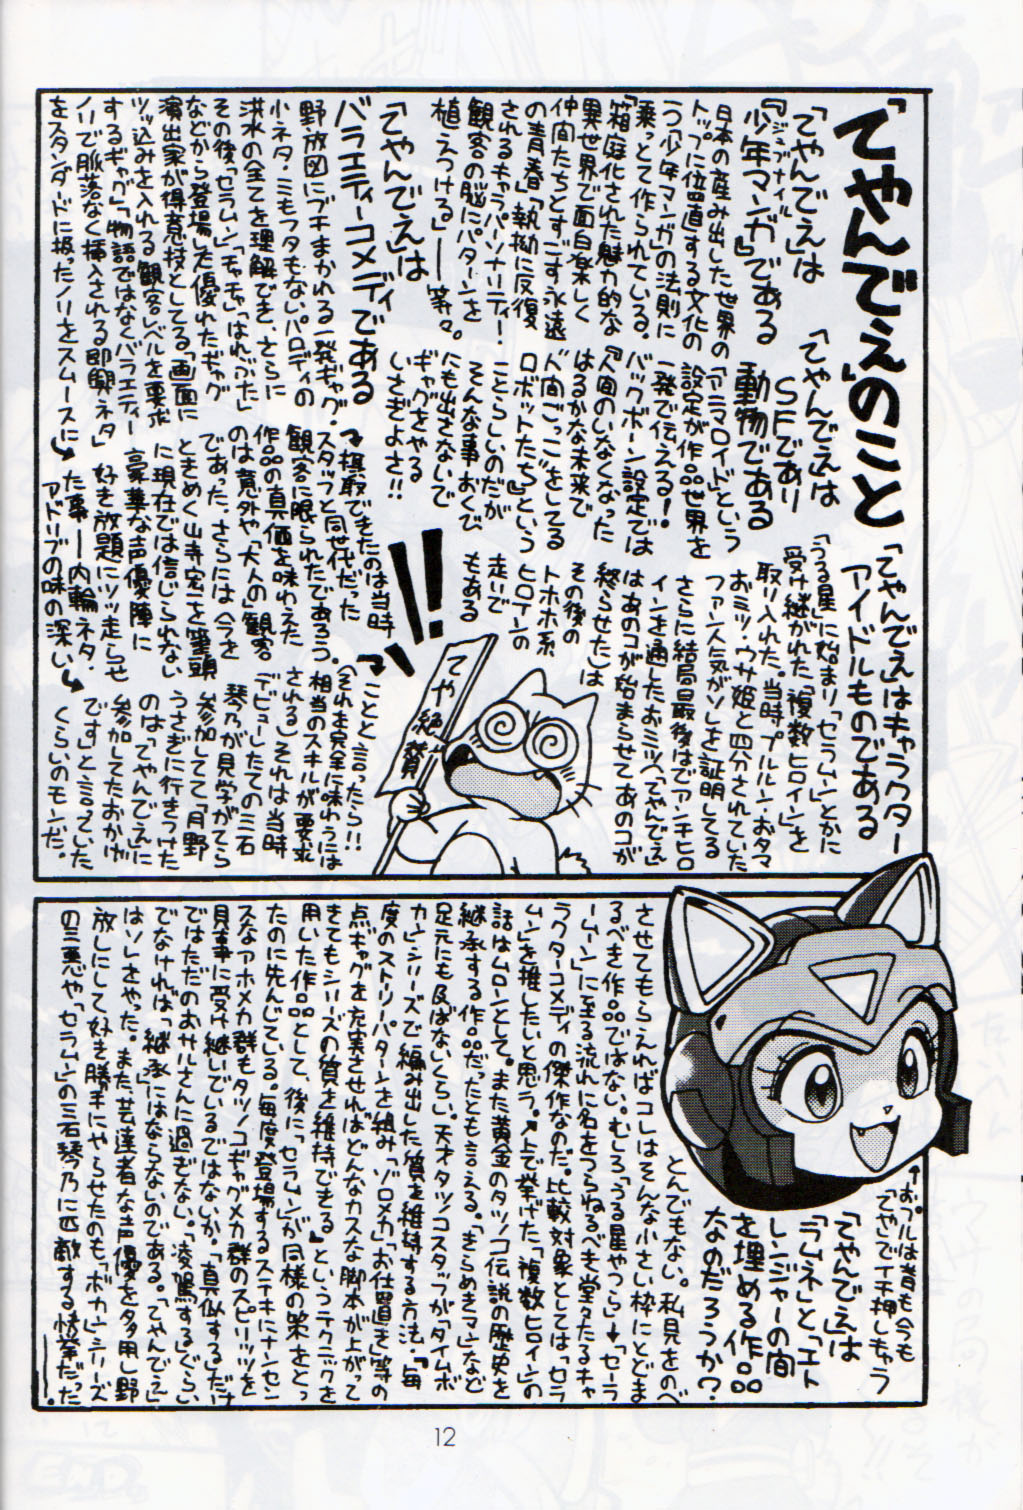 「てやんでえ」のこと
「てやんでえ」は
『ジュブナイル
少年マンガ』である
日本の産み出した世界の
トップに位置する文化の一
つ「少年マンガ」の法則に
乗っとて作られている。
「箱庭化された魅力的な
異世界で面白楽しく
仲間たちとすごす永遠
の青春」執拗に反復
されるキャラパーソナリティー！
観客の脳にパターンを
植えつける」——等々。
「てやんでえ」は
SFであり
動物である
「アニマロイド」という
設定が作品世界を
一発で伝える！
バックボーン設定では
『人間のいなくなった
はるかな未来で
“人間ごっこ”をしてる
ロボットたち』という
ことらしいのだが
そんな事おくび
にも出さないで
ギャグをやる
いさぎよさ!!
「てやんでえ」はキャラクター
アイドルものである
「うる星」に始まり「セラムン」とかに
受け継がれた「複数ヒロイン」を
取り入れた。当時プルルン・おタマ
おミツ・ウサ姫と四分されていた
ファン人気がソレを証明してる
さらに結局最後までアンチヒロ
インを通したおミツ(「てやんでえ」
はあのコが始まらせてあのコが
終らせた)は
その後の
トホホ系
ヒロインの
走りで
もある
「てやんでえ」は
バラエティーコメディである
野放図にブチまかれる一発ギャグ・
小ネタ・ミもフタもない。パロディの
洪水の全てを理解でき、さらに
その後「セラムン」「チャチャ」「はれぶた」
などから登場した優れたギャグ
演出家が得意技としてる「画面に
ツッ込みを入れる観客レベルを要求
するギャグ」「物語ではなくバラエティー
ノリで脈落なく挿入される即興ネタ」
をスタンダードに扱ったノリをスムースに
摂取できたのは当時
スタッフと同世代だった
観客に限られたであろう。
作品の真価を味わえた
のは意外や「大人の」観客
であった。さらには今を
ときめく山寺宏一を筆頭
に現在では信じられない
豪華な声優陣に
好き放題にツッ走らせ
た事——内輪ネタ・
アドリブの味の深い
ことと言ったら!!
(それを完全に味わうには
相当のスキルが要求
される)それは当時
デビューしたての三石
琴乃が見学がてら
参加してて「月野
うさぎに行きつけた
のは『てやんでえ』に
参加してたおかげ
です」と言えていた
くらいのモンだ。
!!
てや絶賛
↑おプルは昔も今も
「てやで」イチ押しもキャラ
「てやんでえ」は
「ラムネ」と「エト
レンジャー」の間
を埋める作品
なのだろうか？
とんでもない。私見をのべ
させてもらえればコレはそんな小さい枠にとどま
るべき作品ではない。むしろ「うる星やつら→セーラ
ームーン」に至る流れに名をつらねるべき堂々たるキャ
ラクターコメディの傑作なのだ。比較対象としては「セラ
ムン」を推したいと思う。上で挙げた「複数ヒロイン」の
話はムロンとして。また黄金のタツノコ伝説の歴史を
継承する作品だったとも言える。「きらめきマン」など
足元にも及ばないくらい。天才タツノコスタッフが「タイムボ
カン」シリーズで編み出した「質を維持する方法・「毎
度のストーリーパターンを組み「ゾロメカ」「お仕置き」等の
点ギャグを充実させればどんなカスな脚本が上がって
きてもシリーズの質を維持できる」というテクニックを
用いた作品として、後に「セラムン」が同様の策をとっ
たのに先んじてる。毎度登場するステキにナンセン
スなアホメカ群もタツノコギャグメカ群のスピリッツを
見事に受け継いでいるではないか。「真似する」だけ
ではただのおサルさんに過ぎない。「凌駕する」ぐらい
でなければ「継承」にはならないのである。「てやんでえ」
はソレをやった。また芸達者な声優を多用し野
放しにして好き勝手にやらせたのも「ボカン」シリーズ
の三悪や「セラムン」の三石琴乃に匹敵する快挙だった
——。
12